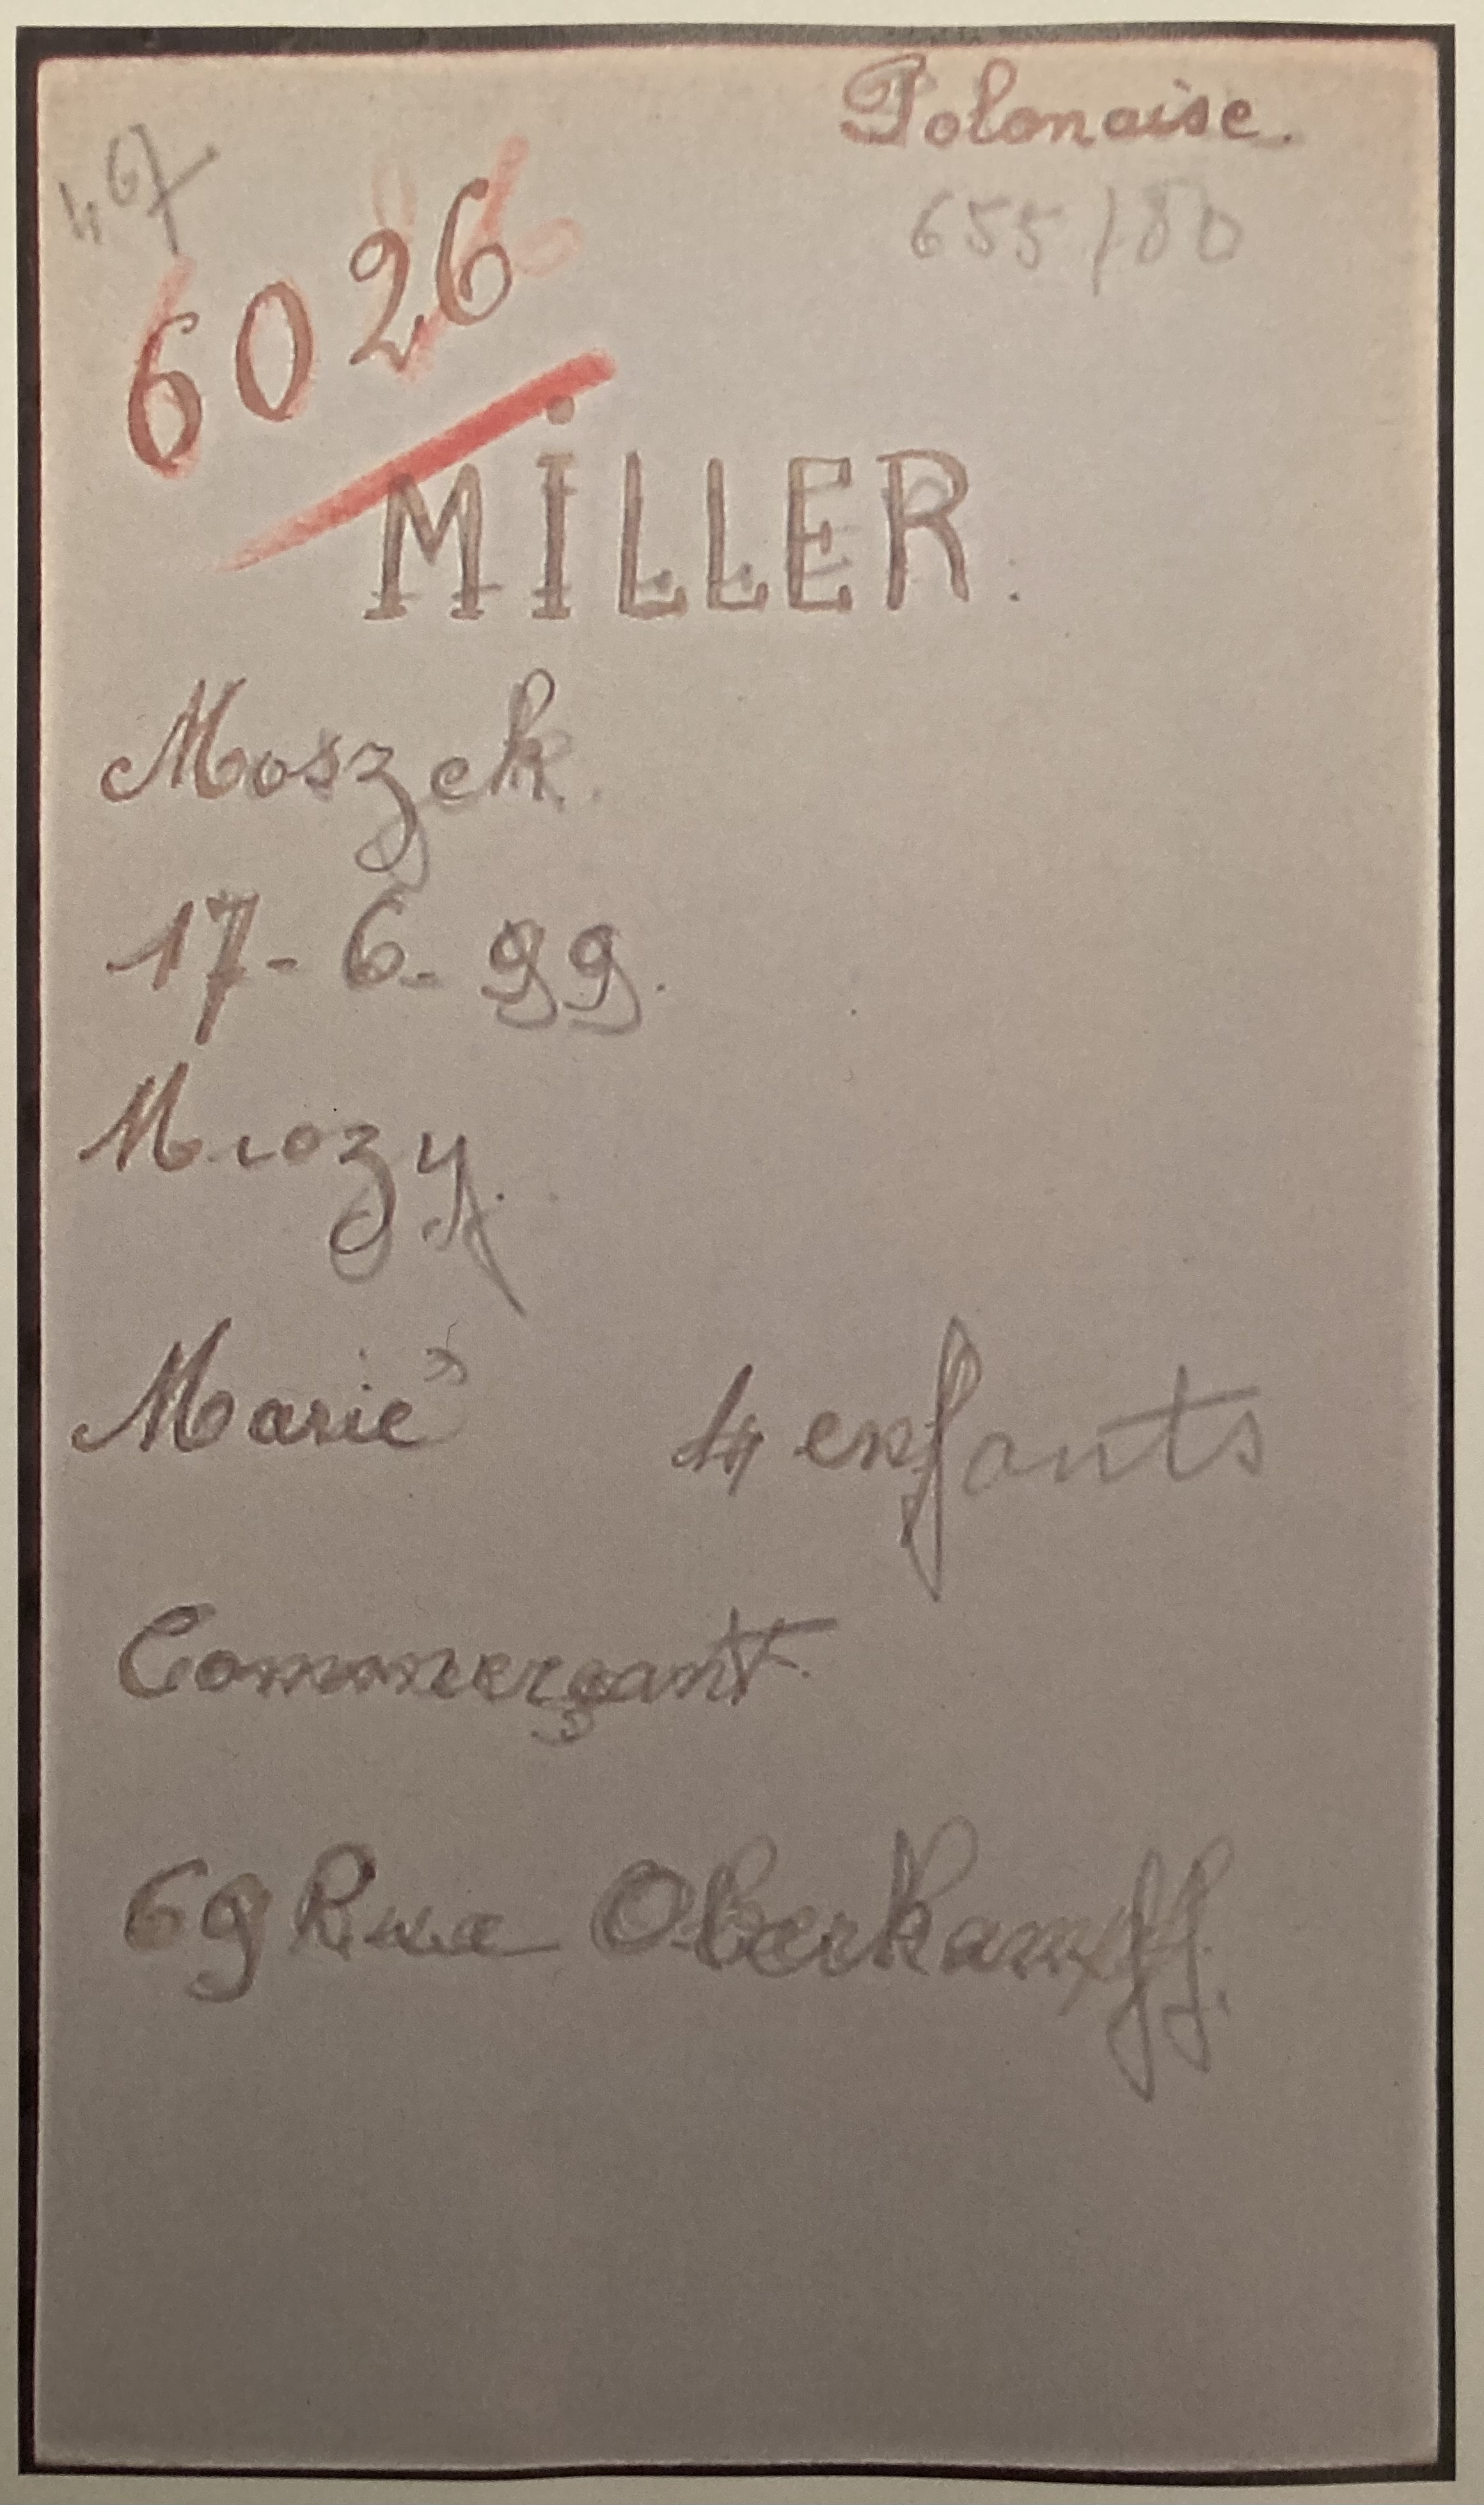 Polonaise.
467
655/80
6026
MiLLER.
Moszek.
17-6-99.
Mrozy.
Marié 4 enfants
Commerçant.
69 Rue Oberkampff.